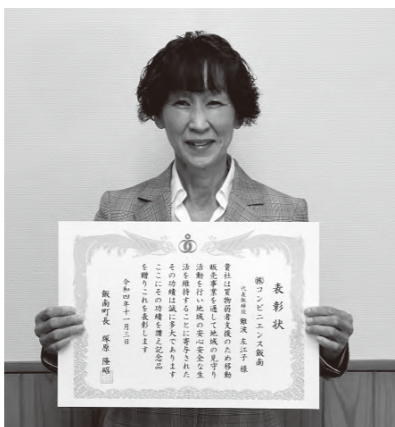 表彰状
㈱コンビニエンス飯南
代表取締役 難波 左江子 様
貴社は買物弱者支援のため移動
販売事業を通して地域の見守り
活動を行い地域の安心安全な生
活を維持することに寄与された
その功績は誠に多大であります
ここにその功績を讃え記念品
を贈りこれを表彰します
令和四年十一月三日
飯南町長 塚原 隆昭